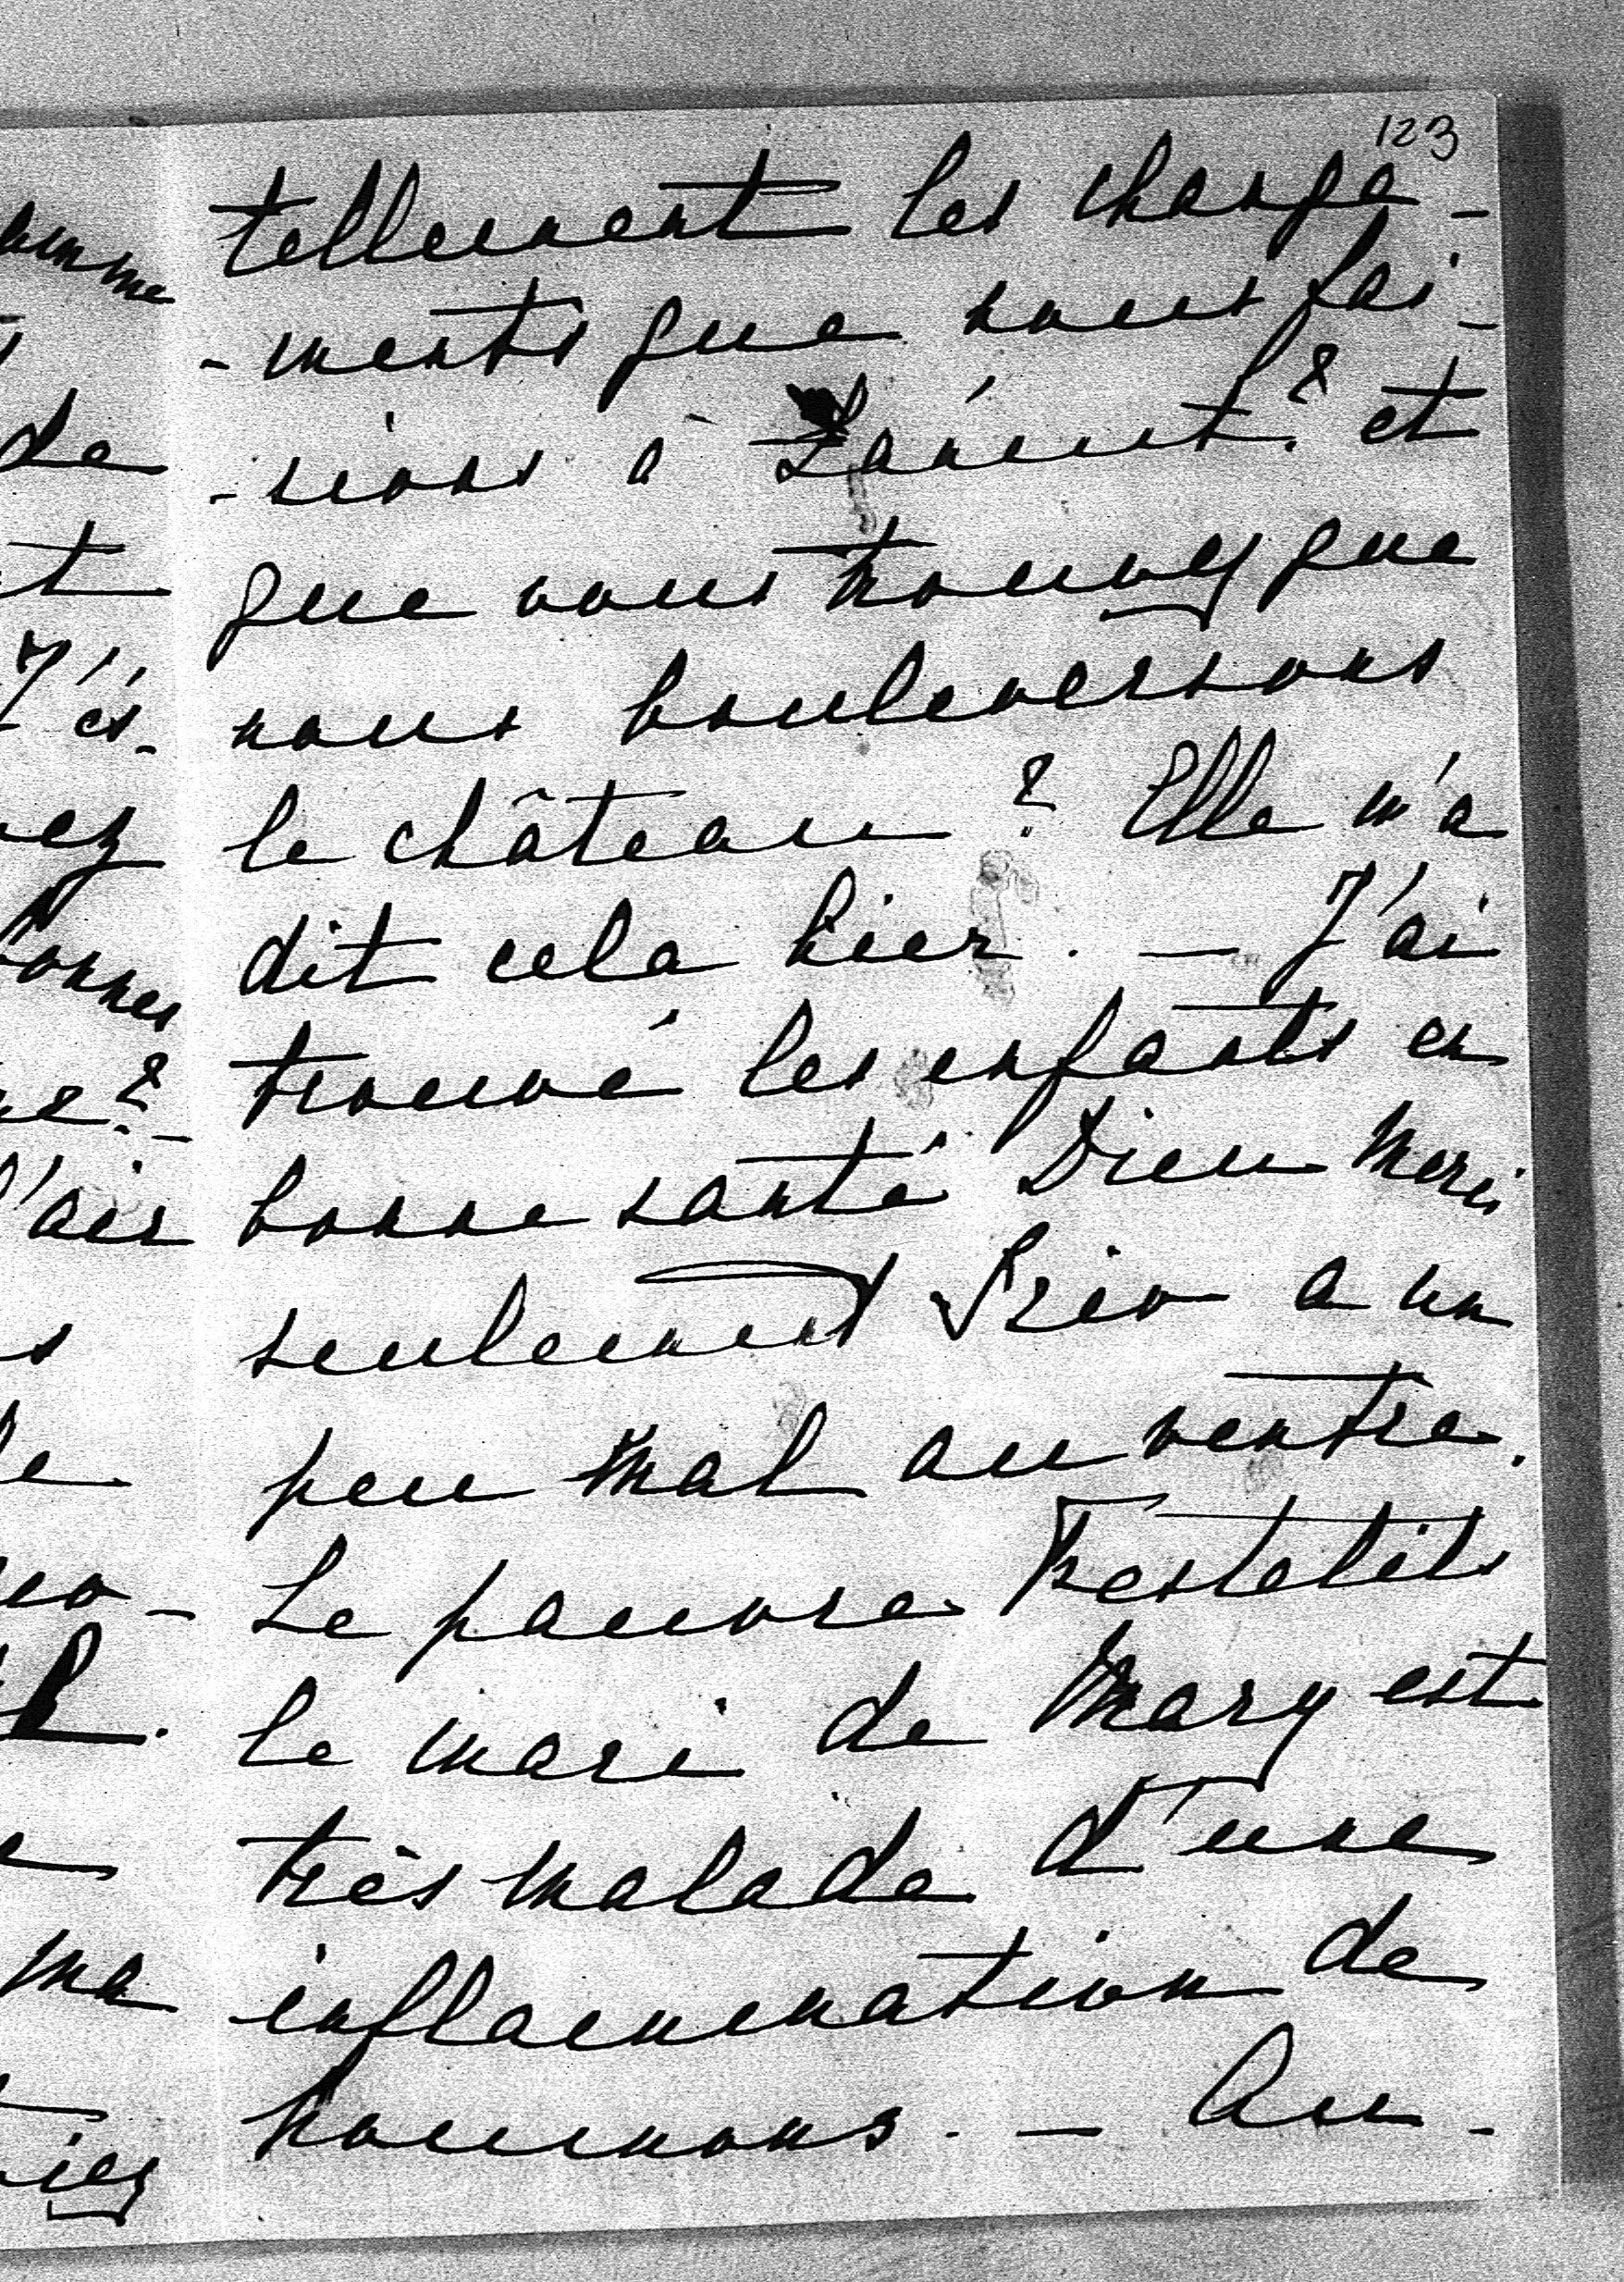 123
tellement les change-
-ments que nous fai-
-sions à Łańcut? et
que vous trouvez que
nous bouleversons
le château? Elle m'a
dit cela hier. — J'ai
trouvé les enfants en
bonne santé Dieu Merci
seulement a un
peu mal au ventre.
Le pauvre Festetits
le mari de Mary est
très malade d'une
inflammation de
poumons. — Au-
de
t
J'és-
vez
bonnes
l'air
s
ma